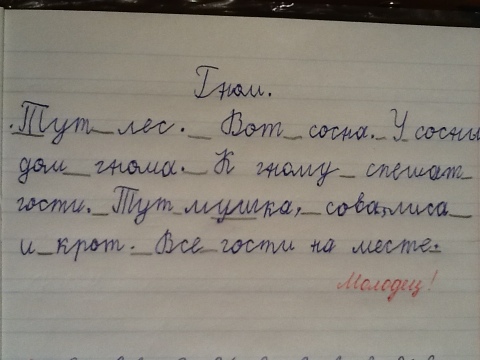 Гном.
Тут лес. Вот сосна. У сосны
дом гнома. К гному спешат
гости. Тут мушка, сова, лиса
и крот. Все гости на месте.
Молодец!